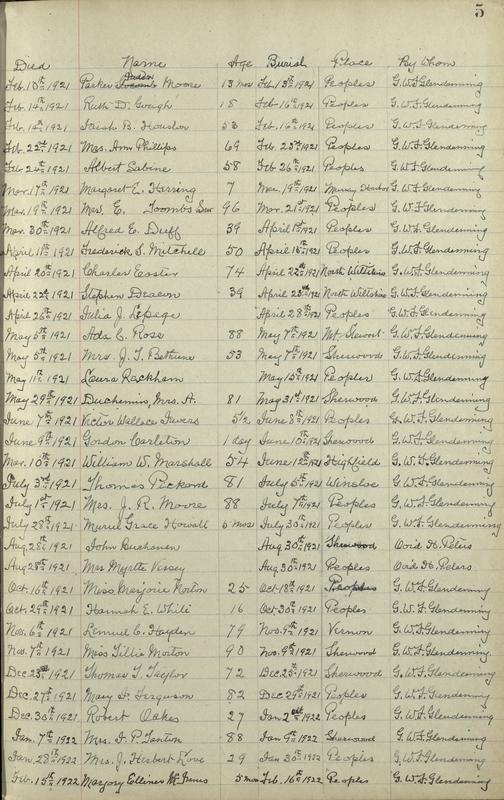 5
Died Name Age Burish Place By Whom
Feb. 10th 1921 Parker Moore 13 mos Feb. 13th 1921 Peoples G.W.F. Glendenning
Feb. 14th 1921 Ruth D. Gough 18 Feb. 16th 1921 Peoples G.W.F. Glendenning
Feb. 14th 1921 B. Houston 53 Feb. 16th 1921 Peoples G.W.F. Glendenning
Feb. 22nd 1921 Mrs. Ann Phillips 69 Feb. 1921 Peoples G.W.F. Glendenning
Feb. 24th 1921 Albert Sabine 58 Feb 26th 1921 Peoples G.W.F. Glendenning
Mar. 17th 1921 Margaret E. Herring 7 Mar. 19th 1921 Murray Harbor G.W.F. Glendenning
Mar. 19th 1921 Mrs. E. Toombs Senr 96 Mar. 21st 1921 Peoples G.W.F. Glendenning
Mar. 30th 1921 Alfred E. Duff 39 April 1st 1921 Peoples G.W.F. Glendenning
April 11th 1921 Frederick S. Mitchell 50 April 1921 Peoples G.W.F. Glendenning
April 20th 1921 Charles Easter 74 April 22nd 1921 North Wiltshire G.W.F. Glendenning
April 22nd 1921 Stephen Deacon 39 April 1921 North Wiltshire G.W.F. Glendenning
April 26th 1921 Julia J. Lepage April 28th 1921 Peoples G.W.F. Glendenning
May 5th 1921 Ada E. Ross 88 May 7th 1921 Mt. Stewart G.W.F. Glendenning
May 5th 1921 Mrs. J. T. Bethune 53 May 7th 1921 Sherwood G.W.F. Glendenning
May 11th 1921 Laura Rackham May 13th 1921 Peoples G.W.F. Glendenning
May 29th 1921 Duchemin, Mrs. A. 81 May 31st 1921 Sherwood G.W.F. Glendenning
June 7th 1921 Victor Wallace 5½ June 8th 1921 Peoples G.W.F. Glendenning
June 9th 1921 Gordon Carleton 1 day June 10th 1921 Sherwood G.W.F. Glendenning
Mar. 10th 1921 William W. Marshall 54 June 1921 Highfield G.W.F. Glendenning
July 3rd 1921 Thomas Pickard 81 July 5th 1921 Winsloe G.W.F. Glendenning
July 1st 1921 Mrs. J. R. Moore 88 July 1921 Peoples G.W.F. Glendenning
July 28th 1921 Muriel Grace Howatt 6 mos July 30th 1921 Peoples G.W.F. Glendenning
Aug. 28th 1921 John Buchanan Aug 30th 1921 Sherwood H. Peters
Aug 28th 1921 Mrs Myrtle Vessey Aug 30th 1921 Peoples H. Peters
Oct. 16th 1921 Miss Marjorie Norton 25 Oct 18th 1921 Peoples G.W.F. Glendenning
Oct. 29th 1921 Hannah E. White 16 Oct 30th 1921 Peoples G.W.F. Glendenning
Nov. 6th 1921 Lemuel C. Hayden 79 Nov. 9th 1921 Vernon G.W.F. Glendenning
Nov. 7th 1921 Miss Tillie Morton 90 Nov. 9th 1921 Sherwood G.W.F. Glendenning
Dec 23rd 1921 Thomas T. Taylor 72 Dec. 25th 1921 Sherwood G.W.F. Glendenning
Dec. 27th 1921 Mary H. Ferguson 82 Dec 29th 1921 Peoples G.W.F. Glendenning
Dec. 30th 1921 Robert Oakes 27 Jan 2nd 1922 Peoples G.W.F. Glendenning
Jan. 7th 1922 Mrs. F. P. Tanton 88 Jan 9th 1922 Sherwood G.W.F. Glendenning
Jan 28th 1922 Mrs. J. Herbert Love 29 Jan 30th 1922 Peoples G.W.F. Glendenning
Feb. 15th 1922 Marjory McInnes 5 mos Feb. 16th 1922 Peoples G.W.F. Glendenning